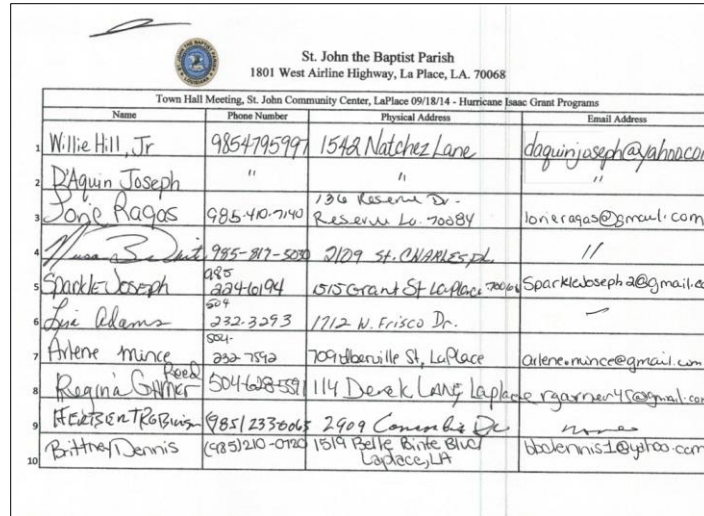 St. John the Baptist Parish
1801 West Airline Highway, La Place, LA. 70068
Town Hall Meeting, St. John Community Center, LaPlace 09/18/14 - Hurricane Isaac Grant Programs
Name Phone Number Physical Address Email Address
1 Willie Hill, Jr 9854795997 1542 Natchez Lane daquinjoseph@yahoo.co
2 D'Aquin Joseph " " "
136 Reserve Dr.
3 Lorie Ragas 985-410-7140 Reserve La. 70084 lorieragas@gmail.com
4 985-817-5030 2109 St. CHARLES pl. //
985
5 Sparkle Joseph 224-6194 1515 Grant St LaPlace 70068 SparkleJoseph2@gmail.co
504
6 Lisa Adams 232.3293 1712 W. Frisco Dr.
504-
7 Arlene Mince 232-7592 709 Iberville St, LaPlace arlene.mince@gmail.com
Reed
8 Regina Garner 504-628-5591 114 Derek LANE Laplace rgarner45@gmail.co
9 HERBERT RObinson (985) 2909 Dr none
10 Brittney Dennis (985)210-0720 1519 Belle Pointe Blvd bbdennis1@yahoo.com
Laplace, LA